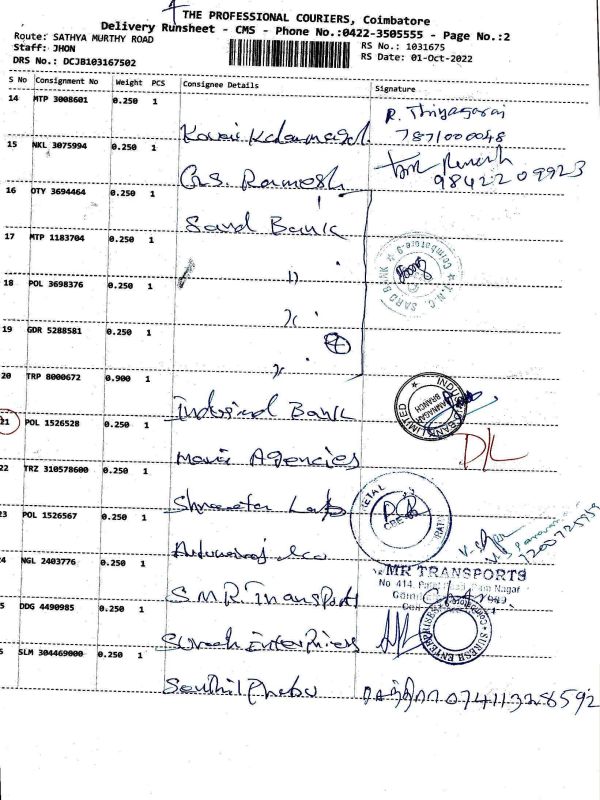 THE PROFESSIONAL COURIERS, Coimbatore
Delivery Runsheet - CMS - Phone No.:0422-3505555 - Page No.:2
Route: SATHYA MURTHY ROAD
Staff: JHON
DRS No.: DCJB103167502
RS No.: 1031675
RS Date: 01-Oct-2022
S No Consignment No Weight PCS Consignee Details Signature
14 MTP 3008601 0.250 1
R. Thiyagaraj
7871000048
15 NKL 3075994 0.250 1
G.S. Ramesh
Ramesh
9842209923
16 OTY 3694464 0.250 1
Sard Bank
17 MTP 1183704 0.250 1
18 POL 3698376 0.250 1
19 GDR 5288581 0.250 1
4
20 TRP 8000672 0.900 1
Indusind Bank
21 POL 1526528 0.250 1
Agencies
D/L
22 TRZ 310578600 0.250 1
23 POL 1526567 0.250 1
24 NGL 2403776 0.250 1
S.M.R. Transport
MR TRANSPORTS
No 414,
25 DDG 4490985 0.250 1
Suresh Enterprises
SURESH ENTERPRISES
26 SLM 304469000 0.250 1
Senthil Prabu
07411328592